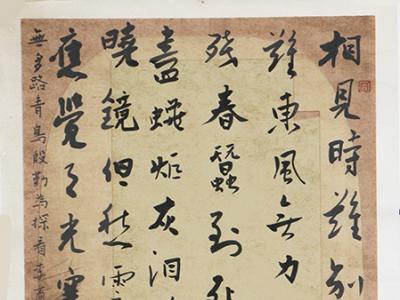 相見時難別
難東風無力
残春蠶到死
盡蠟炬灰泪
曉鏡但愁雲
應覺月光寒
無多路青鳥殷勤為探看李